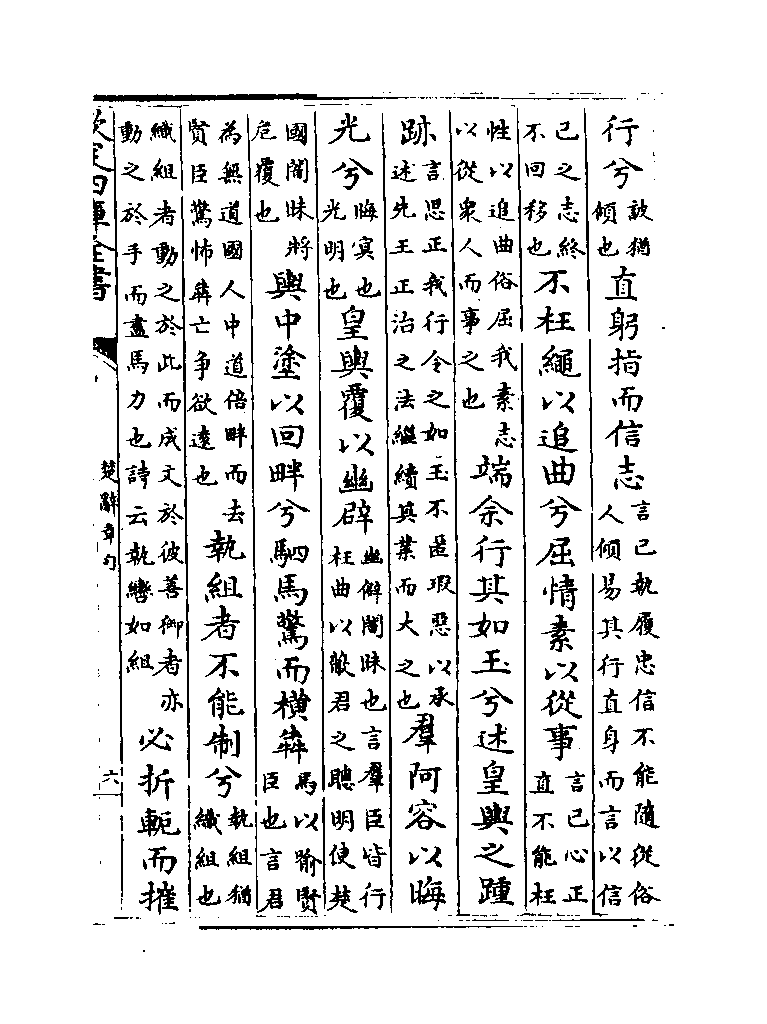 行兮詖猶傾也直躬指而信志言已執履忠信不能隨從俗人傾易其行直身而言以信
已之志終不回移也不枉繩以追曲兮屈情素以從事言已心正直不能枉
性以追曲俗屈我素志以從衆人而事之也端余行其如玉兮述皇輿之踵
跡言思正我行令之如玉不匿瑕惡以承述先王正治之法繼續其業而大之也羣阿容以晦
光兮晦冥也光明也皇輿覆以幽辟幽僻闇昧也言羣臣皆行枉曲以蔽君之聰明使楚
國闇昧將危覆也輿中塗以回畔兮駟馬驚而橫犇馬以喻賢臣也言君
為無道國人中道倍畔而去賢臣驚怖犇亡爭欲遠也執組者不能制兮執組猶織組也
織組者動之於此而成文於彼善御者亦動之於手而盡馬力也詩云執轡如組必折軛而摧
欽定四庫全書
楚辭章句
六